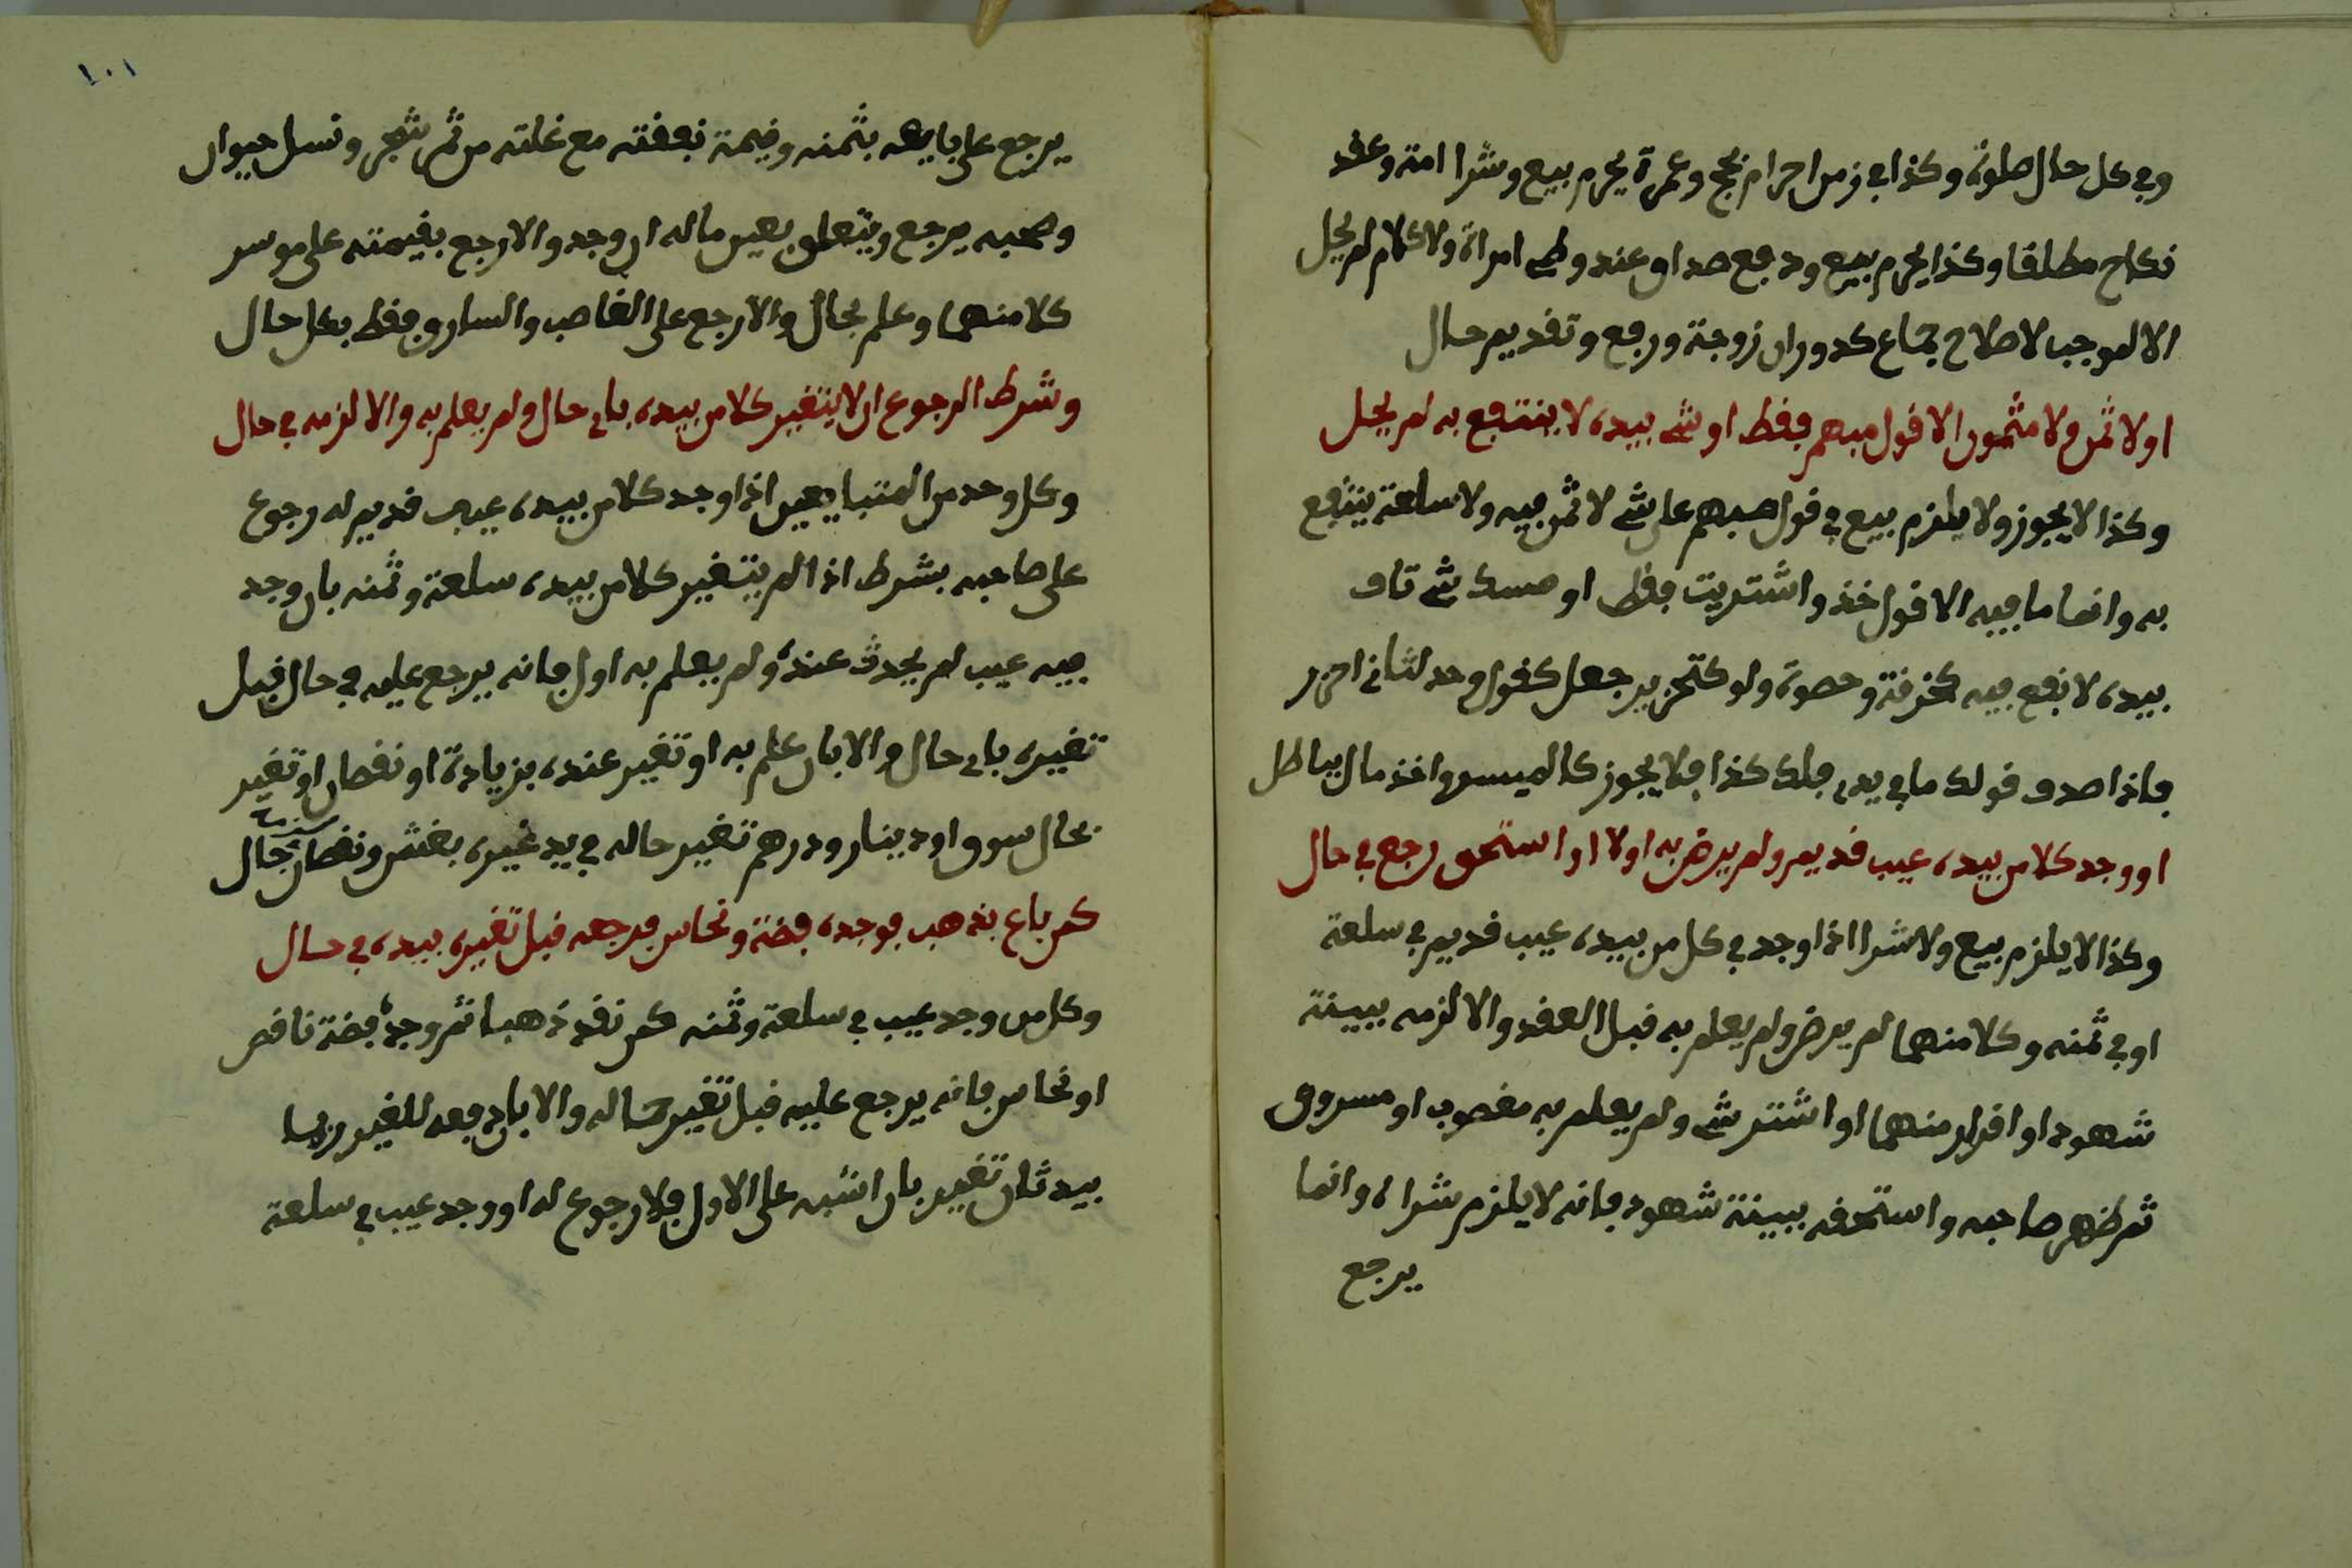 وفي كل حال صلوة وكذا في زمن احرام بحج وعمرة يحرم بيع وشرا امة وعقد
نكاح مطلقا وكذا يحرم بيع ودفع صداق عند وطء امراة ولا كلام لم يحل
الا لموجب لاصلاح جماع كدوران زوجة ورفع وتقديم حال
او لا ثمن ولا مثمون الا قول مبهم فقط او شيء بيده لا ينتفع به لم يحل
وكذا لا يجوز ولا يلزم بيع في قول مبهم على شيء لا ثمن فيه ولا سلعة ينتفع
به وانما ما فيه الا قول خذ واشتريت فقط او مسك شيء تاف
بيده لا نفع فيه كخزفة وحصوة ولو كتحزير جعل كقول وحد لثاني احزر
فاذا صدق قولك ما في يدي فلك كذا فلا يجوز كالميسر واخذ مال بباطل
او وجد كلا من بيده عيب قديم ولم يرض به اولا او استحق رجع في حال
وكذا لا يلزم بيع ولا شرا اذا وجد في كل من بيده عيب قديم في سلعة
او في ثمنه وكلا منهما لم يرض ولم يعلم به قبل العقد والا لزمه ببينة
شهود او اقرار منهما او اشتر شيء ولم يعلم به مغصوب او مسروق
ثم ظهر صاحبه واستحقه ببينة شهود فانه لا يلزم شراه وانما
يرجع
١٠١
يرجع على بايعه بثمنه وقيمة نفقته مع غلته من ثمر شجر ونسل حيوان
وصحبه يرجع ويتعلق بعين ماله ان وجد والا رجع بقيمته على موسر
كلا منهما وعلم بحال والا رجع على الغاصب والسارق فقط بكل حال
وشرط الرجوع ان لا يتغير كلا من بيده باي حال ولم يعلم به والا لزمه في حال
وكل وحد من المتبايعين اذا وجد كلا من بيده عيب قديم له رجوع
على صاحبه بشرط اذا لم يتغير كلا من بيده سلعة وثمنه بان وجد
فيه عيب لم يحدث عنده ولم يعلم به اول فانه يرجع عليه في حال قبل
تغييره باي حال والا بان علم به او تغير عنده بزيادة او نقصان او تغير
بحال سوق او دينار ودرهم تغير حاله في يد غيره بغش ونقصان بحال
كمن باع بذهب فوجده فضة ونحاس فرجعه قبل تغييره بيده في حال
وكل من وجد عيب في سلعة وثمنه كمن نقد ذهبا ثم وجده فضة ناقص
او نحاس فانه يرجع عليه قبل تغير حاله والا بان دفعه للغير
بيد ثان تغير بان اشبه على الاول فلا رجوع له او وجد عيب في سلعة